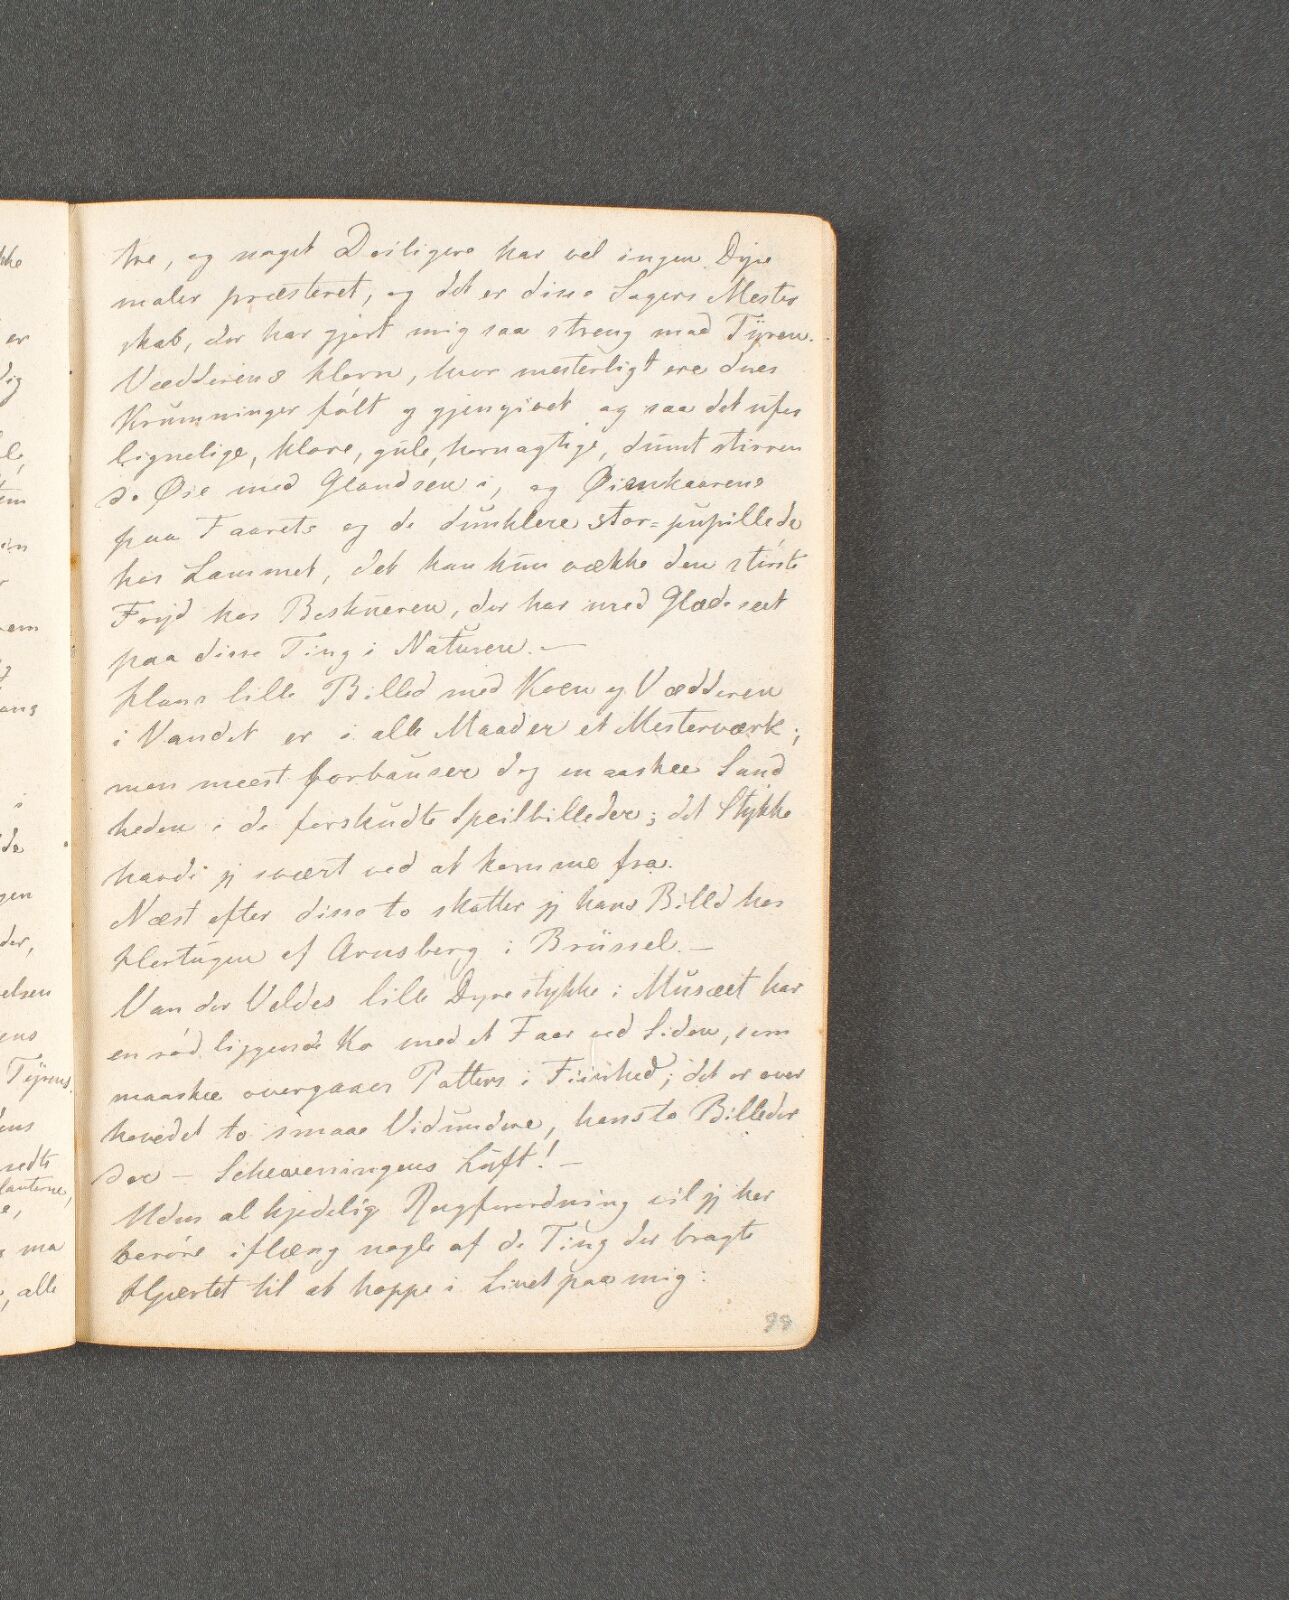 tre, og noget Deiligere har vel ingen Dyre
maler præsteret, og det er disse Sagers Mester
skab, der har gjort mig saa streng mod Tyren.
Vædderens Horn, hvor mesterligt ere dens
Krumninger følt og gjengivet og saa det ufor
lignelige, klare, gule, hornagtige, dumt stirren
de Øie med Glandsen i, og Øienhaarene
paa Faarets og de dunklere stor=pupillede
hos Lammet, det kan kun vække den største
Fryd hos Beskueren, der har med Glæde seet
paa disse Ting i Naturen. —
Hans lille Billed med Koen og Vædderen
i Vandet er i alle Maader et Mesterværk;
men meest forbauser dog maaskee Sand
heden i de forskudte Speilbilleder; det Stykke
havde jg svært ved at komme fra.
Næst efter disse to skatter jg hans Billed hos
Hertugen af Arnsberg i Brüssel. —
Van der Veldes lille Dyrestykke i Musæet har
en rød liggende Ko med et Faar ved Siden, som
maaskee overgaaer Potters i Fiinhed; det er over
hovedet to smaae Vidundere, hans to Billeder
der — Scheveningens Luft! —
Uden al kjedelig Rangforordning vil jg her
berøre iflæng nogle af de Ting der bragte
Hjertet til at hoppe i Livet paa mig:
98
ke
er
dig
em
in
em
ang
i
de
gen
der,
elsen
ens
Tyrens
ens
redte
lanterne,
e,
ma
, alle